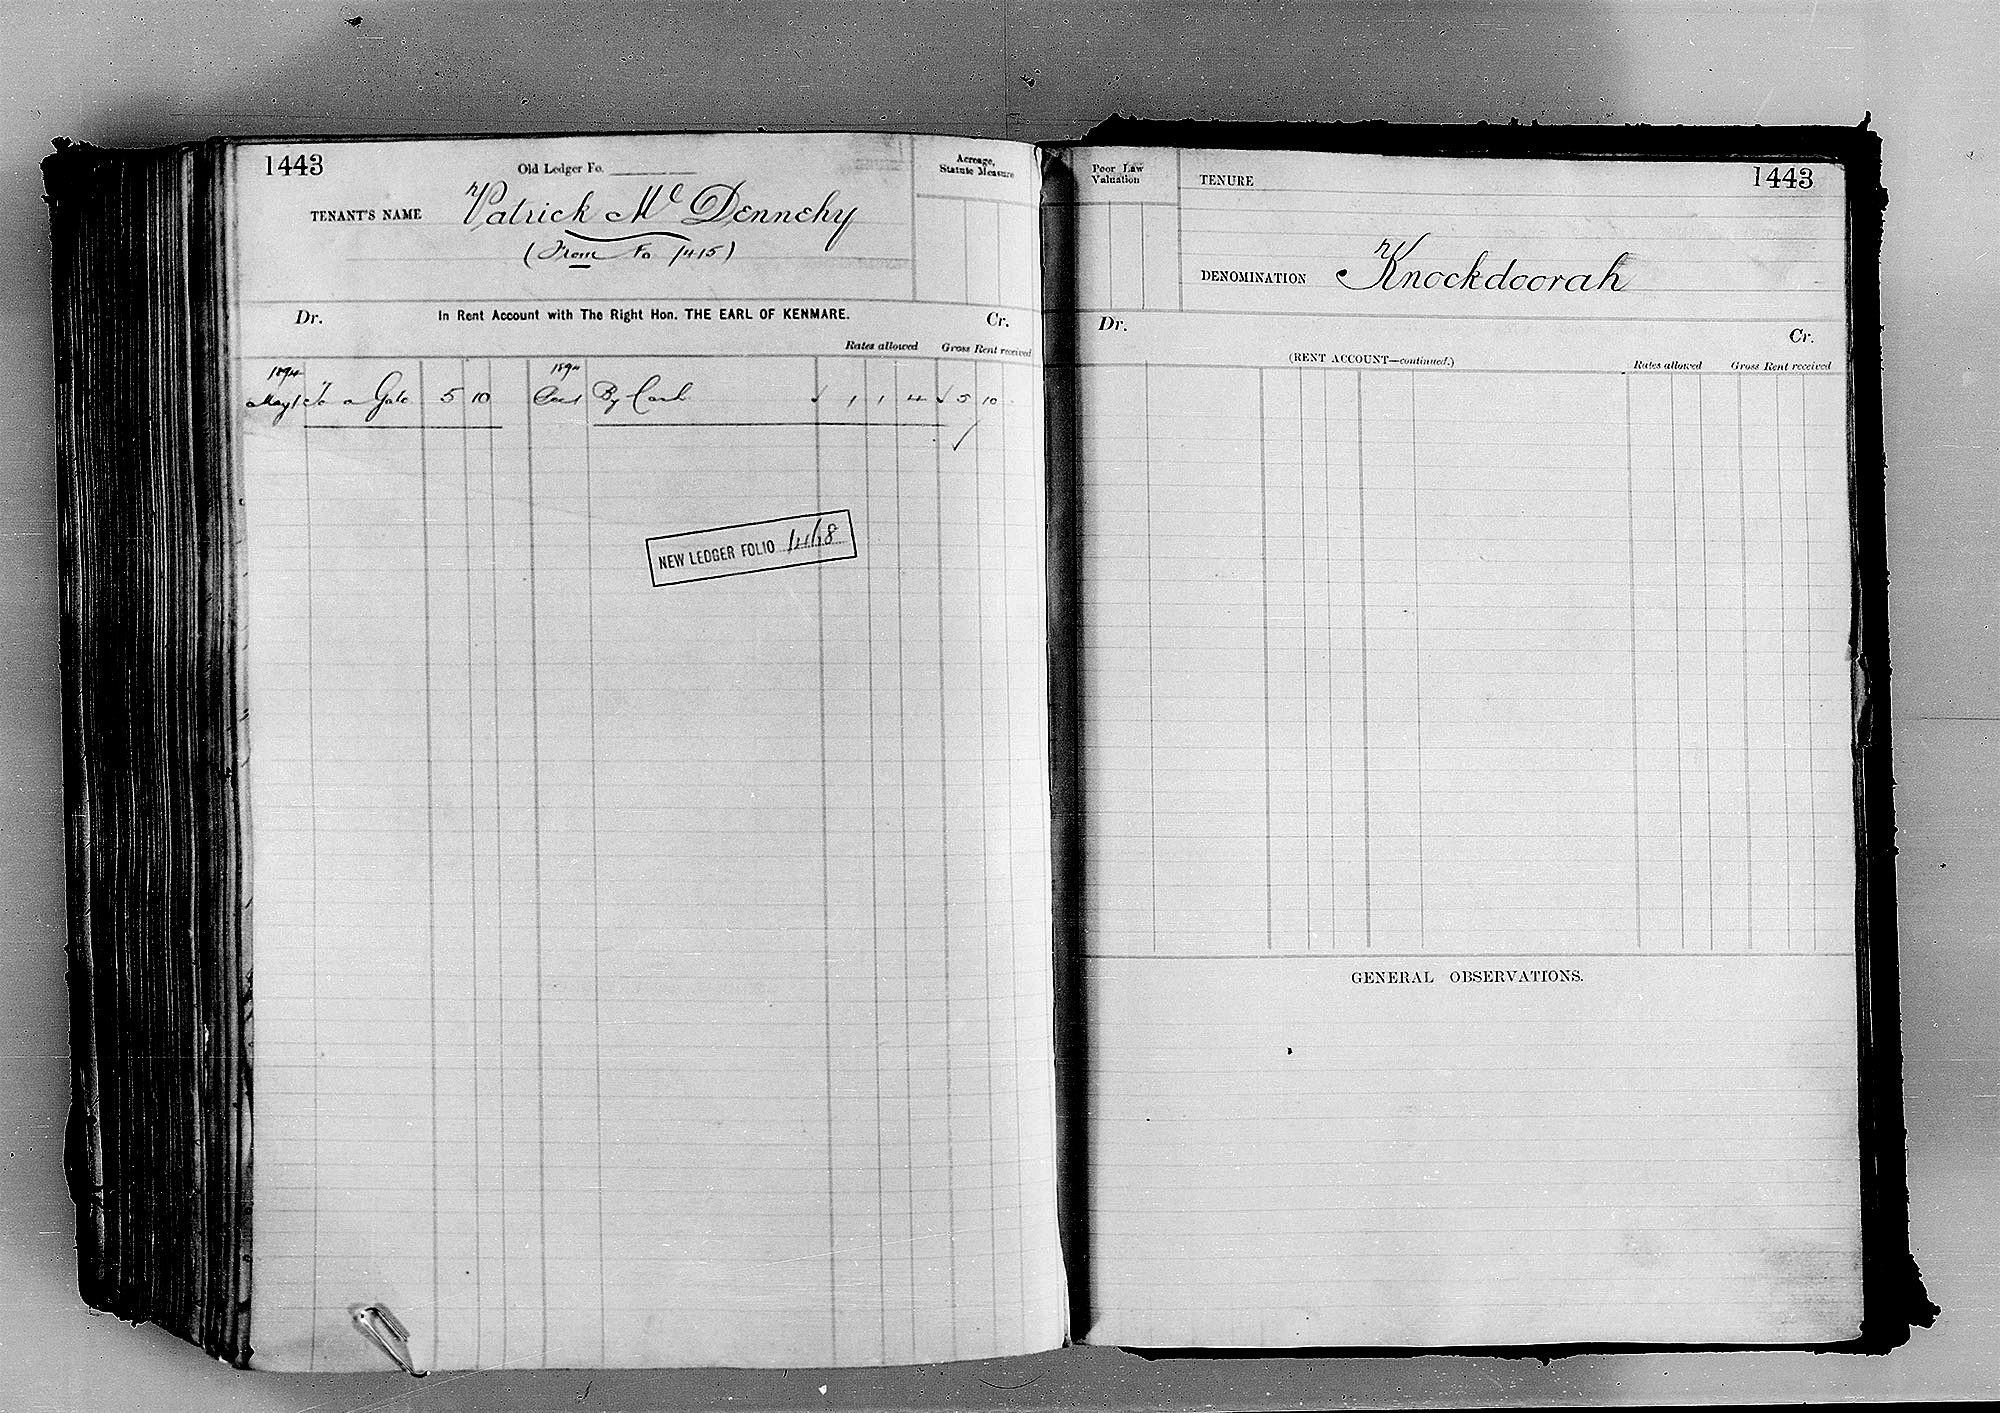 1443
Old Ledger Fo.
TENANT'S NAME Patrick Mc Dennehy
(From Fo 1415)
Acreage,
Statute Measure
Dr. In Rent Account with The Right Hon. THE EARL OF KENMARE. Cr.
Rates allowed Gross Rent received
1894 1894
May 1 To a Gale 5 10 By Cash 1 1 4 5 10
NEW LEDGER FOLIO
Poor Law
Valuation
TENURE 1443
DENOMINATION Knockdoorah
Dr. Cr.
(RENT ACCOUNT—continued.) Rates allowed Gross Rent received
GENERAL OBSERVATIONS.